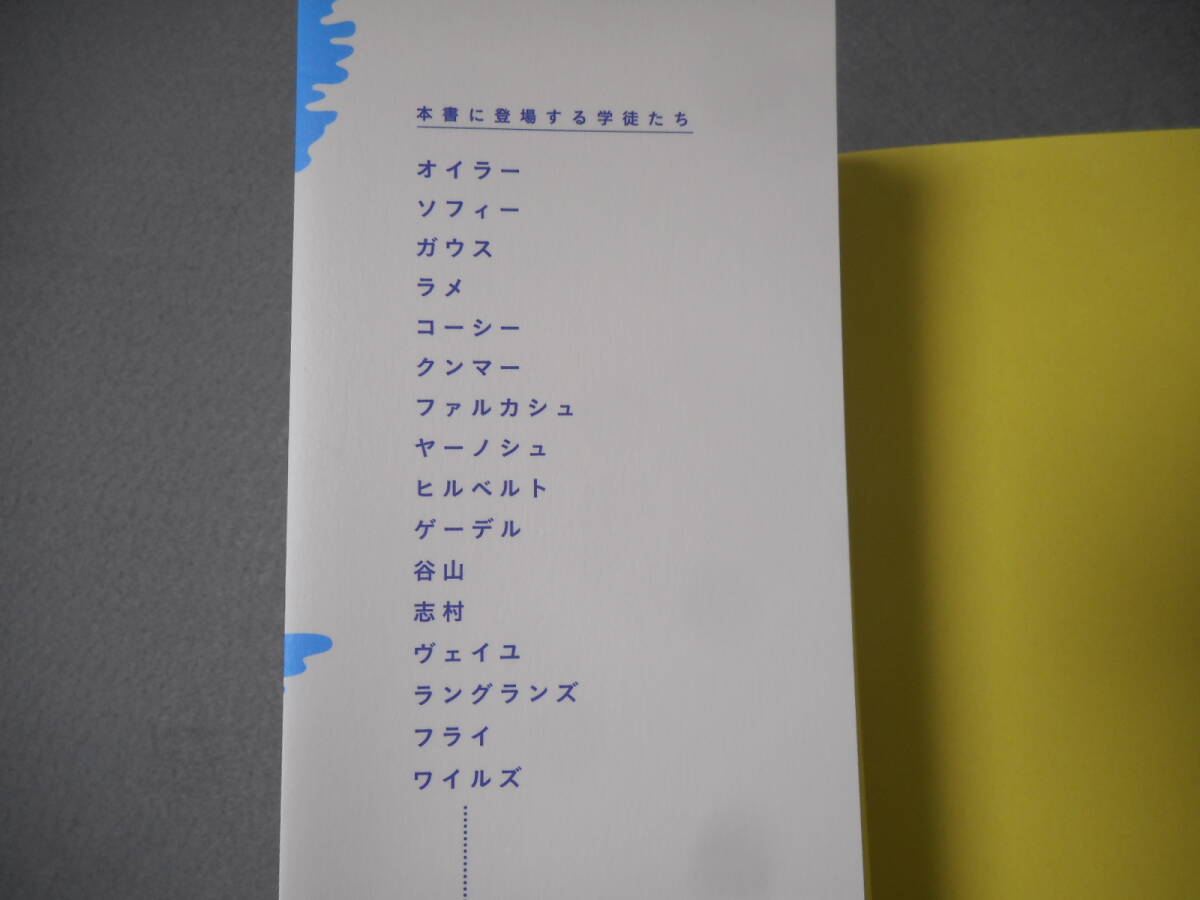 本書に登場する学徒たち
オイラー
ソフィー
ガウス
ラメ
コーシー
クンマー
ファルカシュ
ヤーノシュ
ヒルベルト
ゲーデル
谷山
志村
ヴェイユ
ラングランズ
フライ
ワイルズ